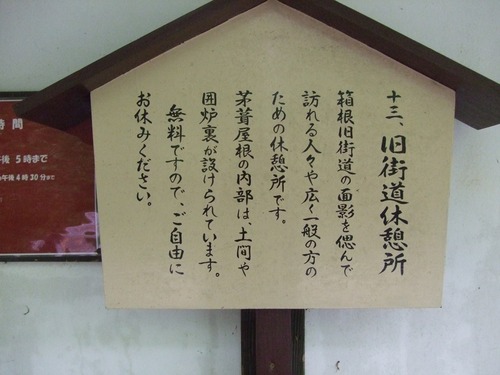 十三、旧街道休憩所
箱根旧街道の面影を偲んで
訪れる人々や広く一般の方の
ための休憩所です。
茅葺屋根の内部は、土間や
囲炉裏が設けられています。
無料ですので、ご自由に
お休みください。
時間
午後 5時まで
午後4時30分まで